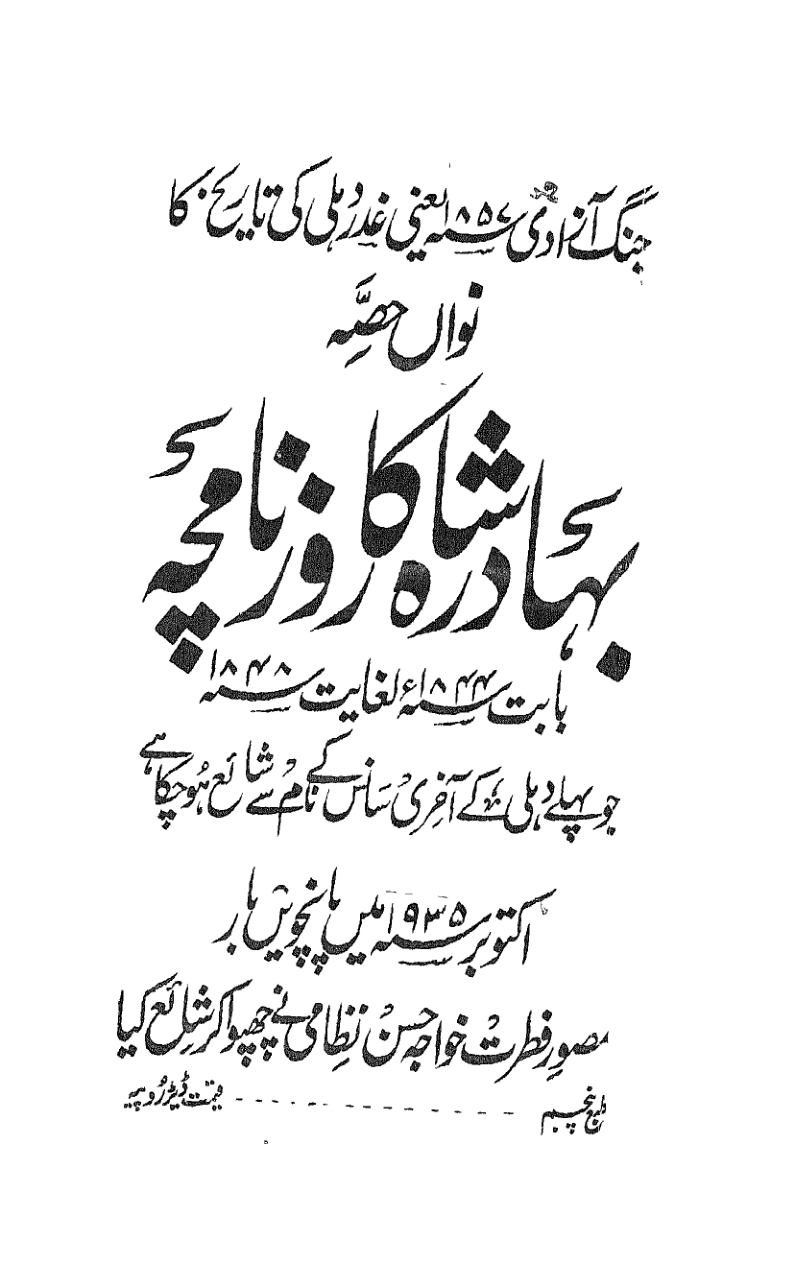 جنگ آزادی ۱۸۵۷ سنہ یعنی غدر دہلی کی تاریخ کا
نواں حصّہ
بہادر شاہ کا روزنامچہ
بابت ۱۸۴۴ سنہء لغایت ۱۸۴۸ سنہ
جو پہلے دہلی کے آخری سانس کے نام سے شائع ہو چکا ہے
اکتوبر ۱۹۳۵ سنہ میں پانچویں بار
مصورِ فطرت خواجہ حسن نظامی نے چھپوا کر شائع کیا
طبع پنجم - - - - - - - - - - - - قیمت ڈیڑھ روپیہ